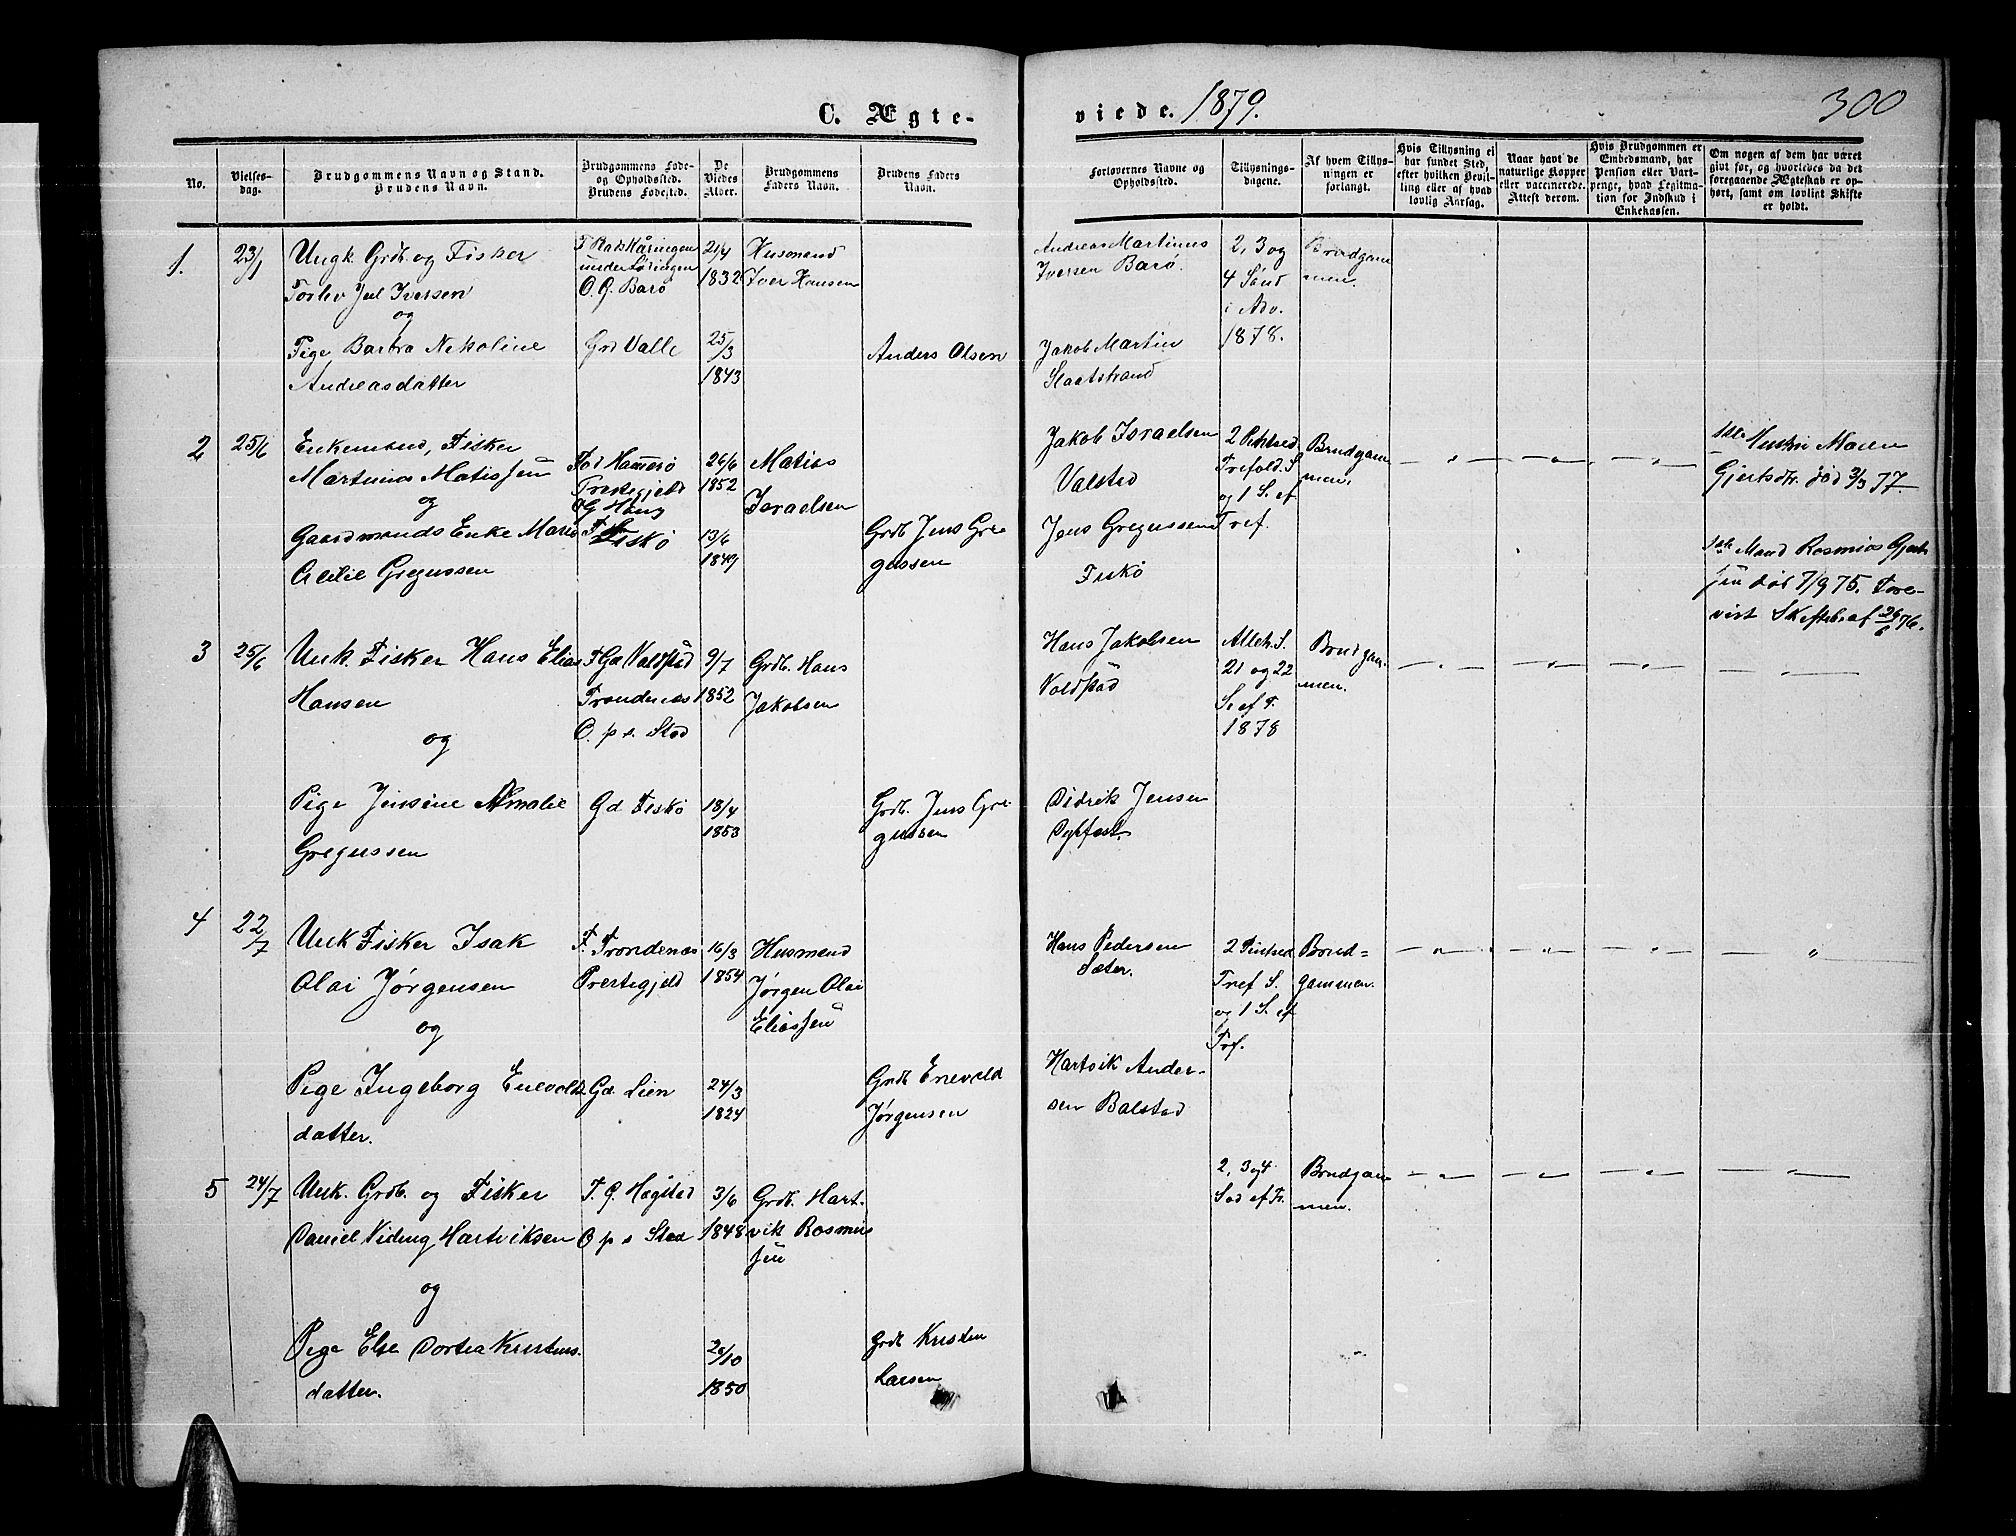 C. Ægte-
viede. 1879.
300
No.
Vielses-
dag.
Brudgommens Navn og Stand.
Brudens Navn.
Brudgommens Føde-
og Opholdssted.
Brudens Fødested.
De
Viedes
Alder.
Brudgommens
Faders Navn.
Brudens Faders
Navn.
Forlovernes Navne og
Opholdssted.
Tillysnings-
dagene.
Af hvem Tillys-
ningen er
forlangt.
Hvis Tillysning ei
har fundet Sted,
efter hvilken Bevil-
ling eller af hvad
lovlig Aarsag.
Naar havt de
naturlige Kopper
eller vaccinerede.
Attest derom.
Hvis Brudgommen er
Embedsmand, har
Pension eller Vart-
penge, hvad Legitma-
tion for Indskud i
Enkekassen.
Om nogen af dem har været
givt før, og hvorledes da det
foregaaende Ægteskab er op-
hørt, samt om lovligt Skifte
er holdt.
1.
23/1
Ungk Grdb. og Fisker
Torlev Jul Iversen
og
Pige Barbra Nekoline
Andreasdatter
O. G. Barø
Grd Valle
21/4
1832
25/3
1843
Husmand
Iver Hansen
Anders Olsen
Andreas Martinus
Iversen Barø.
Jakob Martin
Slaatstrand
2, 3 og
4 Sönd
i Adv.
1878.
Brudgam
men.
2
25/6
Enkemand, Fisker
Martinus Matissen
og
Gaardmands Enke Maria
Cecilie Gregussen
Fisko
26/6
1852
13/6
1849
Matias
Israelsen
Grdb Jens Gre
gussen
Jakob Israelsen
Valstad
Jens Gregussen
Fiskö
2 Pintsed
Trefold. S
og 1 S. ef
Tref.
Brudgam
men.
Gjertsdtr. død 2/3 77.
1ste Mand Rasmus Gjert
sen död 7/9 75. Fore-
vist Skifteb. af 26/6 76.
3
25/6
Unk. Fisker Hans Elias
Hansen
og
Pige Jensine Amalie
Gregussen
F Gd Valdstad
Trondenæs
O. p s. Stad
Gd Fiskö
9/7
1852
18/4
1853
Grdb. Hans
Jakobsen
Grdb. Jens Gre
gussen
Hans Jakobsen
Valdstad
Didrik Jensen
Alleh. S.
21 og 22
S. ef T.
1878
Brudgam
men.
4
22/7
Unk Fisker Isak
Olai Jørgensen
og
Pige Ingeborg Enevolds
datter.
F. Trondenæs
Prestegjeld
Gd Lien
16/3
1854
24/3
1824
Husmand
Jørgen Olai
Eliassen
Grdb Enevold
Jørgensen
Hans Pedersen
Sæter.
Hartvik Ander-
sen Balstad
2 Pintsed
Tref S.
og 1 S. ef
Tref.
Brud=
gammen.
5
24/7
Unk. Grdb. og Fisker
Daniel Viding Hartviksen
og
Pige Else Dortea Kristens
datter.
F. G. Hogstad
O p s Stad
3/6
1848
20/10
1850
Grdb. Hart-
vik Rasmus
sen
Grdb Kristen
Larsen
2, 3 og 4
Sød ef Tr.
Brudgam
men.